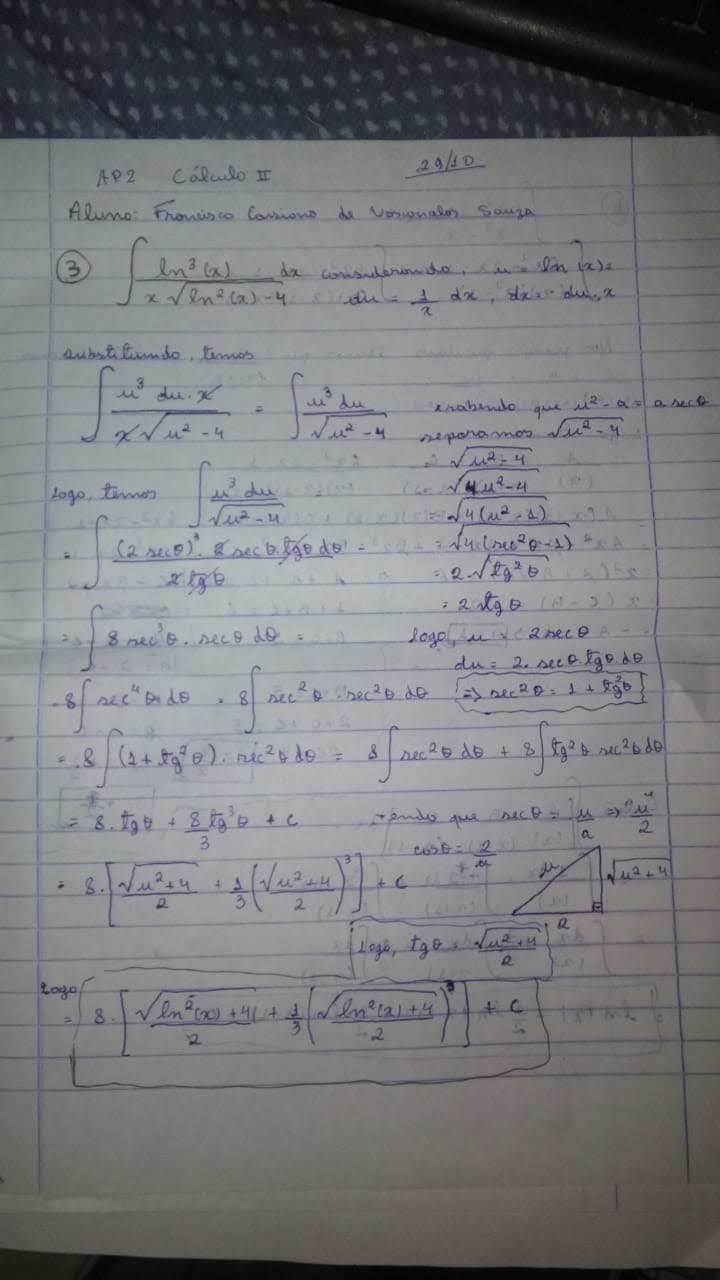 AP2 Cálculo II 29/10
Aluno: Francisco Cassiano de Vasconcelos Souza
③ ∫ ln³(x) / (x √(ln²(x) - 4)) dx considerando, u = ln(x)=
du = 1/x dx, dx = du.x
substituindo, temos
∫ u³ du.x / (x √(u² - 4)) = ∫ u³ du / √(u² - 4) sabendo que u² - a = a secθ
separamos √(u² - 4)
Logo, temos ∫ u³ du / √(u² - 4)
√(u² - 4)
√(4u² - 4)
= √(4(u² - 1))
= ∫ (2 secθ)³ . 2 secθ. tgθ dθ / 2 tgθ =
= √(4.(sec²θ - 1))
= 2.√(tg²θ)
= 2 tgθ
= ∫ 8 sec³θ . secθ dθ =
Logo, u = 2 secθ
du = 2. secθ tgθ dθ
8 ∫ sec⁴θ dθ = 8 ∫ sec²θ . sec²θ dθ => sec²θ = 1 + tg²θ
= 8 ∫ (1 + tg²θ) . sec²θ dθ = 8 ∫ sec²θ dθ + 8 ∫ tg²θ sec²θ dθ
= 8. tgθ + 8/3 tg³θ + c tendo que secθ = u/a => u/2
cosθ = 2/u
= 8. [√(u² + 4) / 2 + 1/3 (√(u² + 4) / 2)³] + c
u √(u² + 4)
2
Logo, tgθ = √(u² + 4) / 2
Logo
= 8. [√(ln²(x) + 4) / 2 + 1/3 (√(ln²(x) + 4) / 2)³] + c